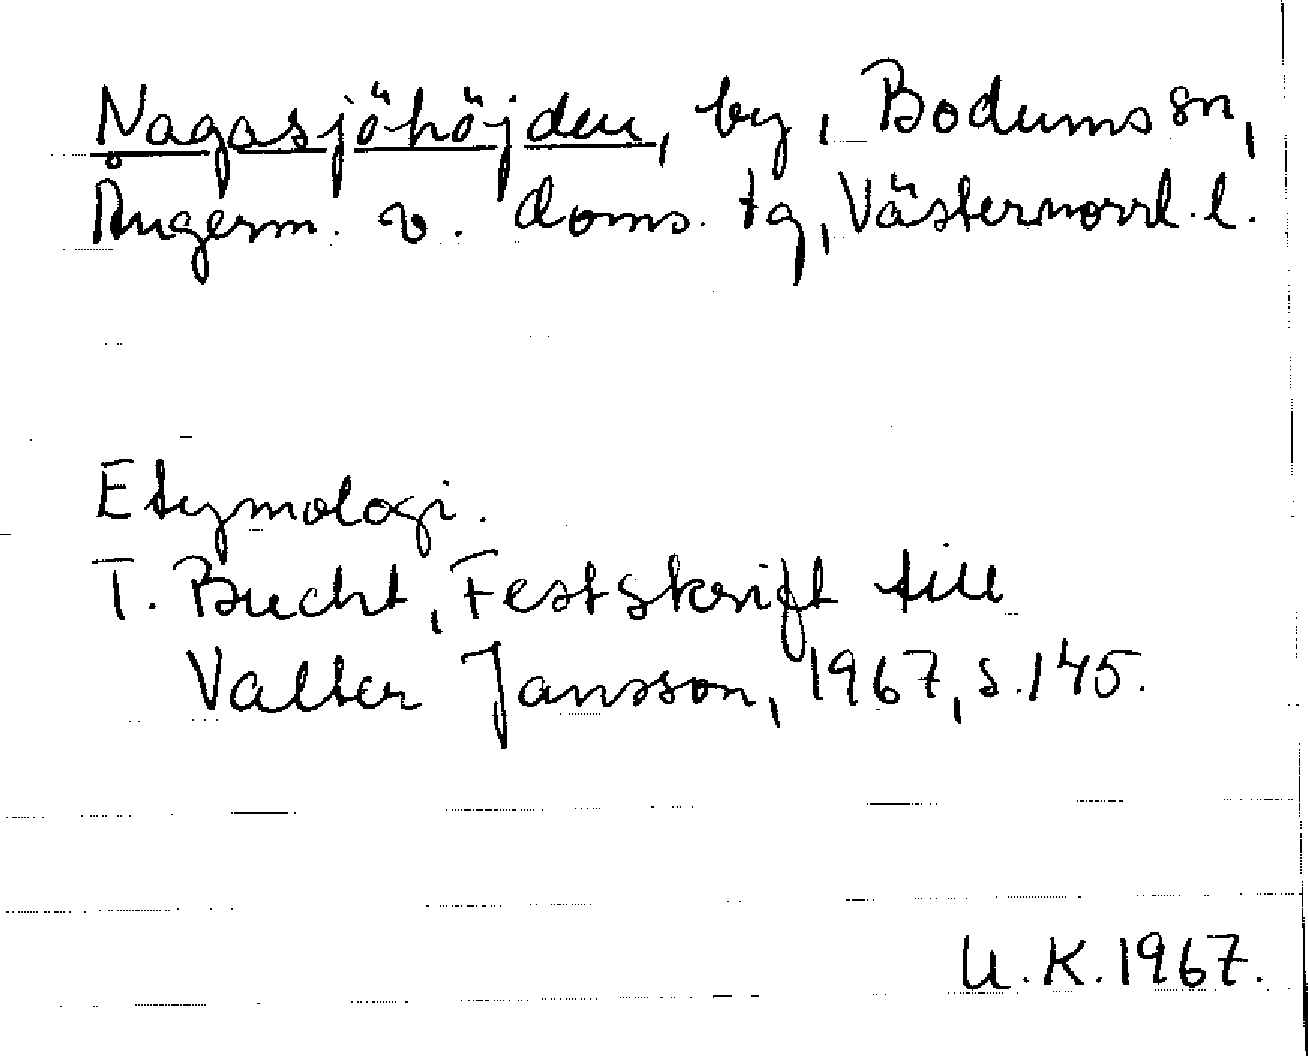 Nagasjöhöjden, by, Bodums sn,
Ångerm. v. doms. tg, Västernorrl. l.
Etymologi.
T. Bucht, Festskrift till
Valter Jansson, 1967, s. 145.
U. K. 1967.